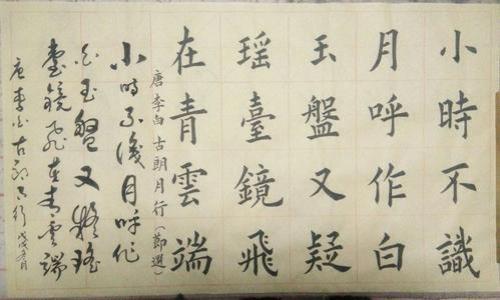 小時不識
月呼作白
玉盤又疑
瑤臺鏡飛
在青雲端
唐李白古朗月行（節選）
小时不識月呼作
白玉盤又疑瑤
臺鏡飛在青雲端
唐李白古朗月行